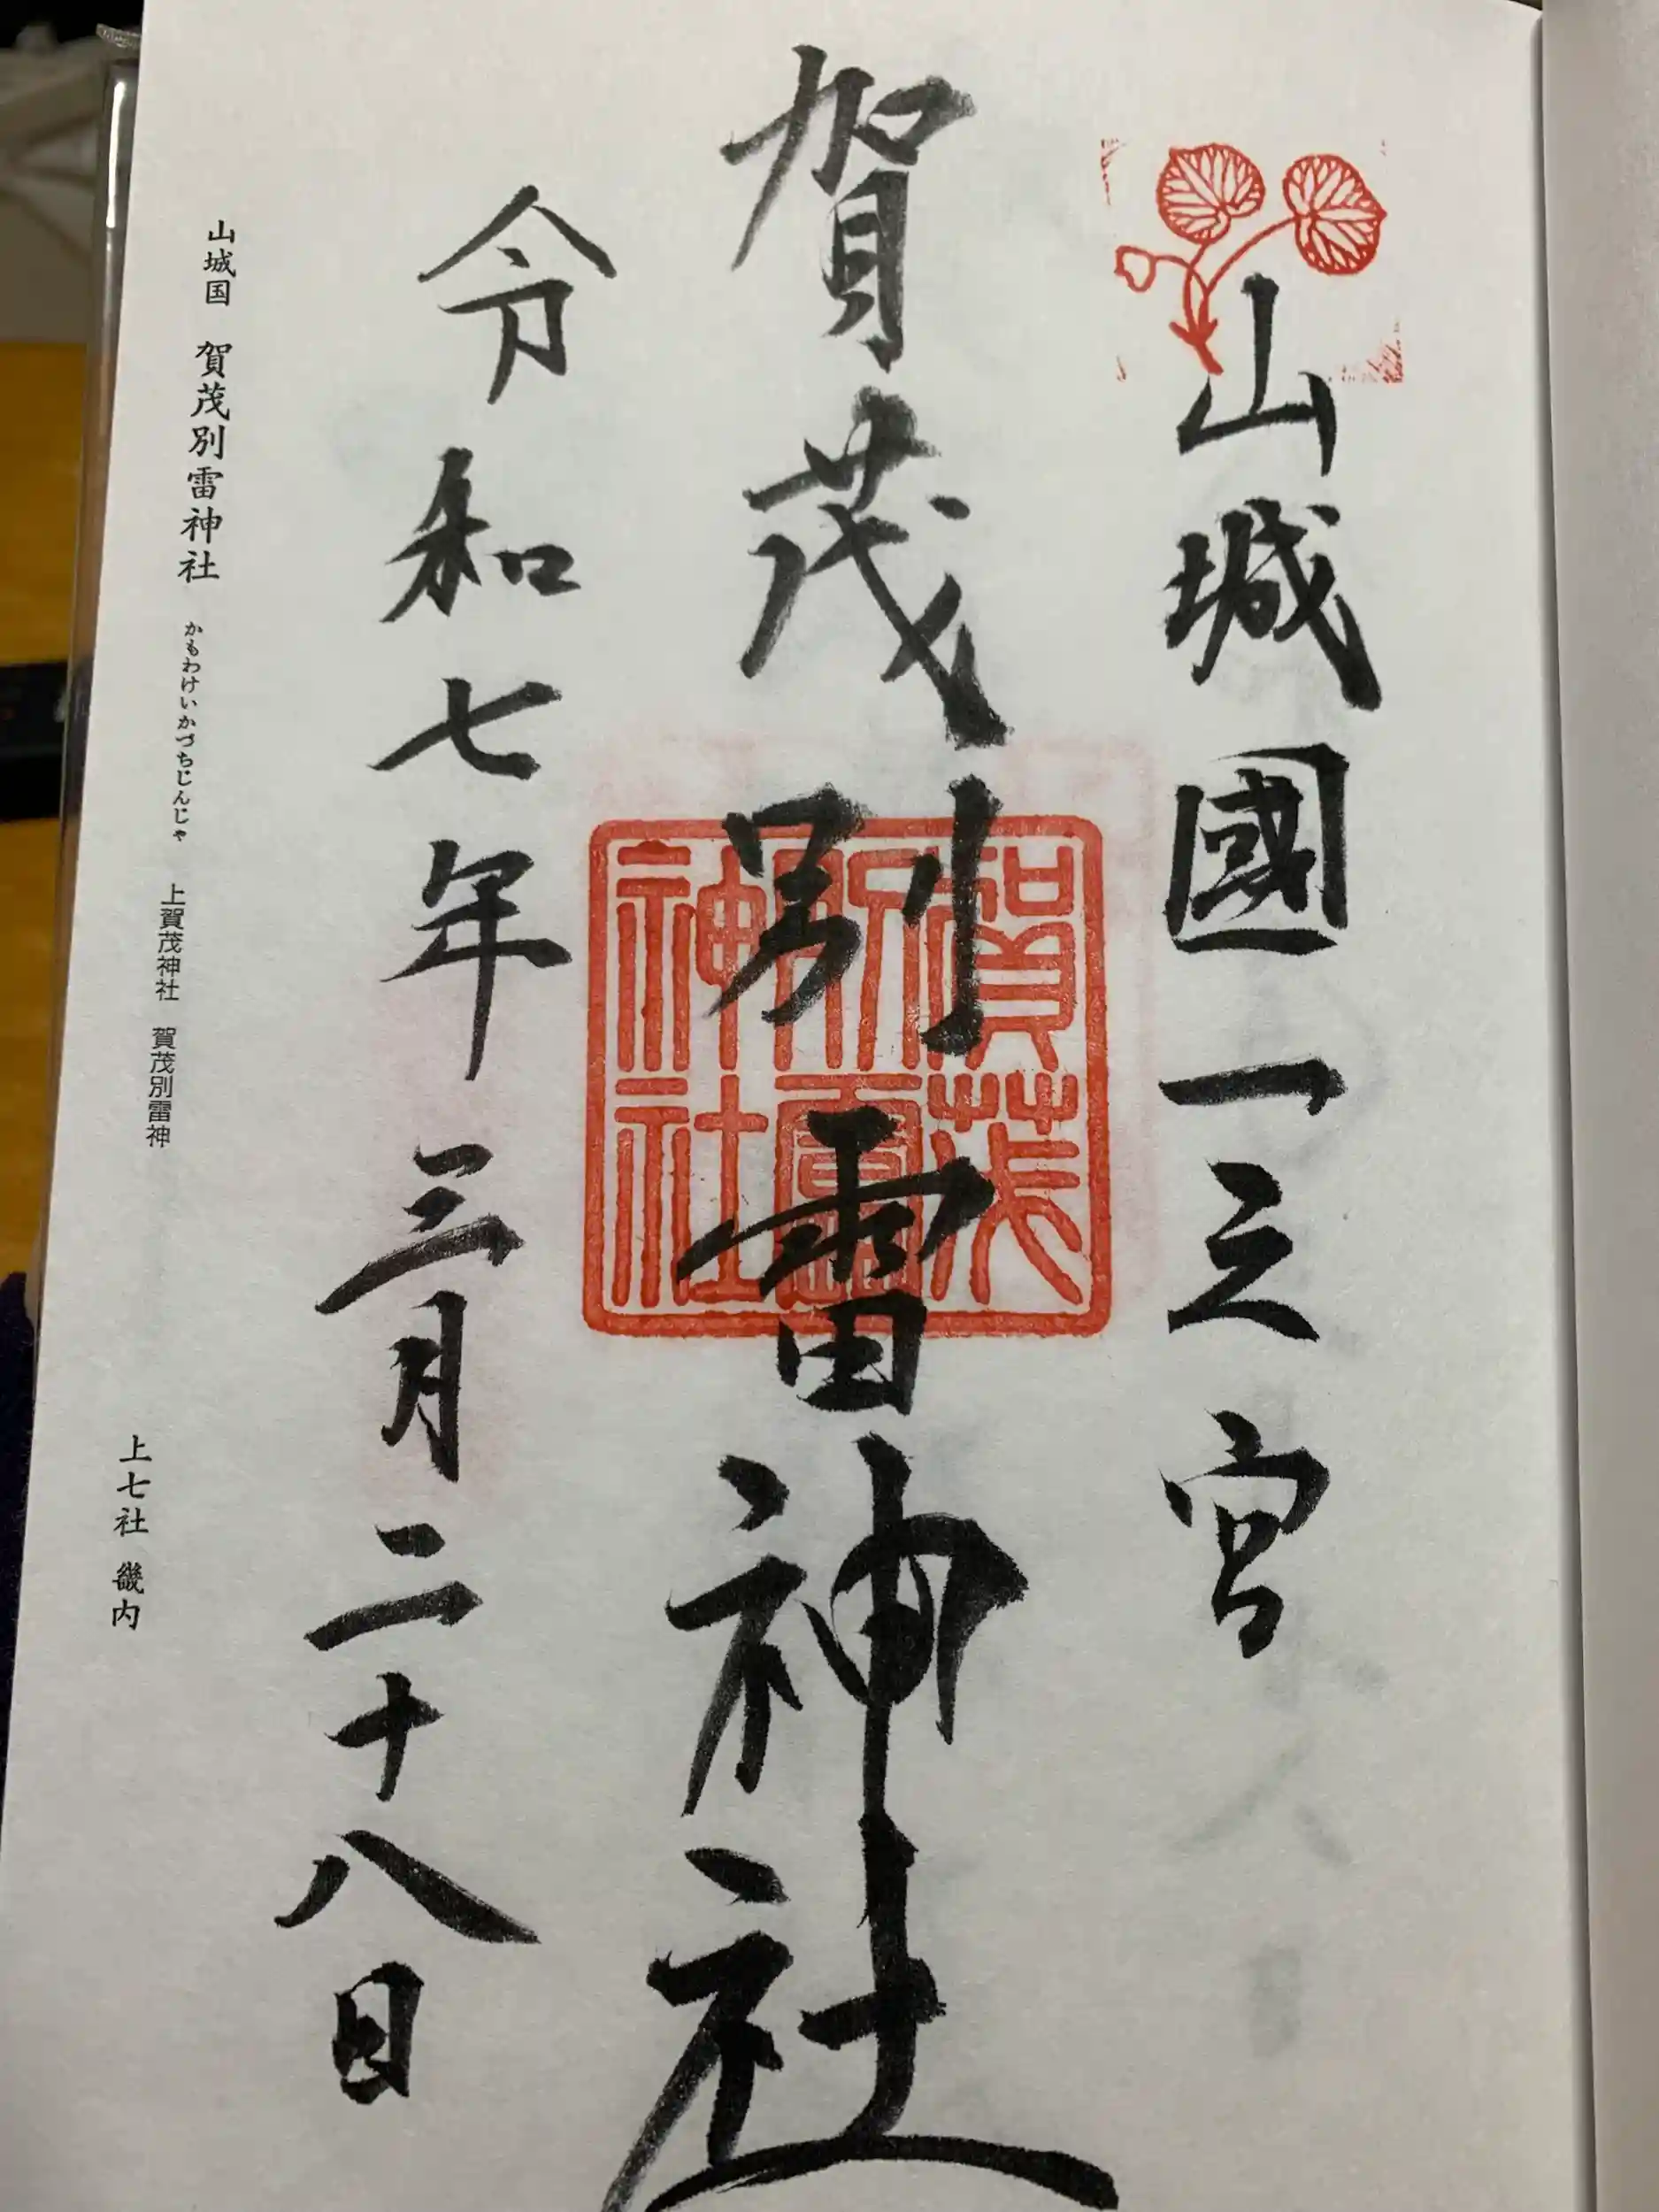 山城國一之宮
賀茂別雷神社
賀茂別雷神社
令和七年三月二十八日
山城国 賀茂別雷神社 かもわけいかづちじんじゃ 上賀茂神社 賀茂別雷神 上七社 畿内